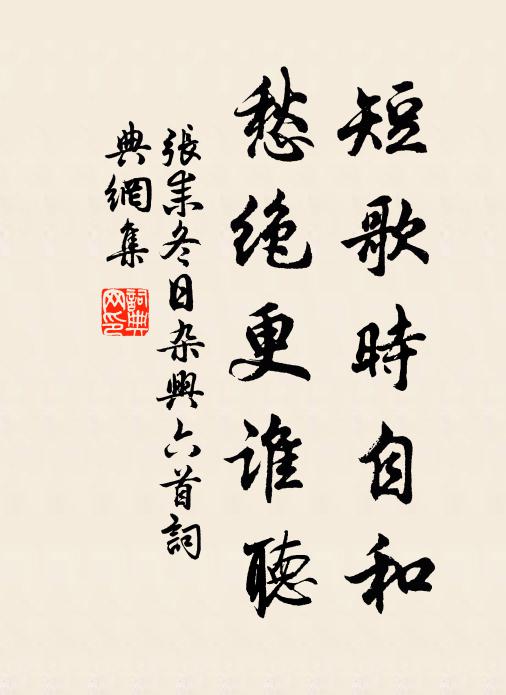 短歌時自和
愁絶更誰聽
張耒冬日杂興六首詞
典網集
詞典网印